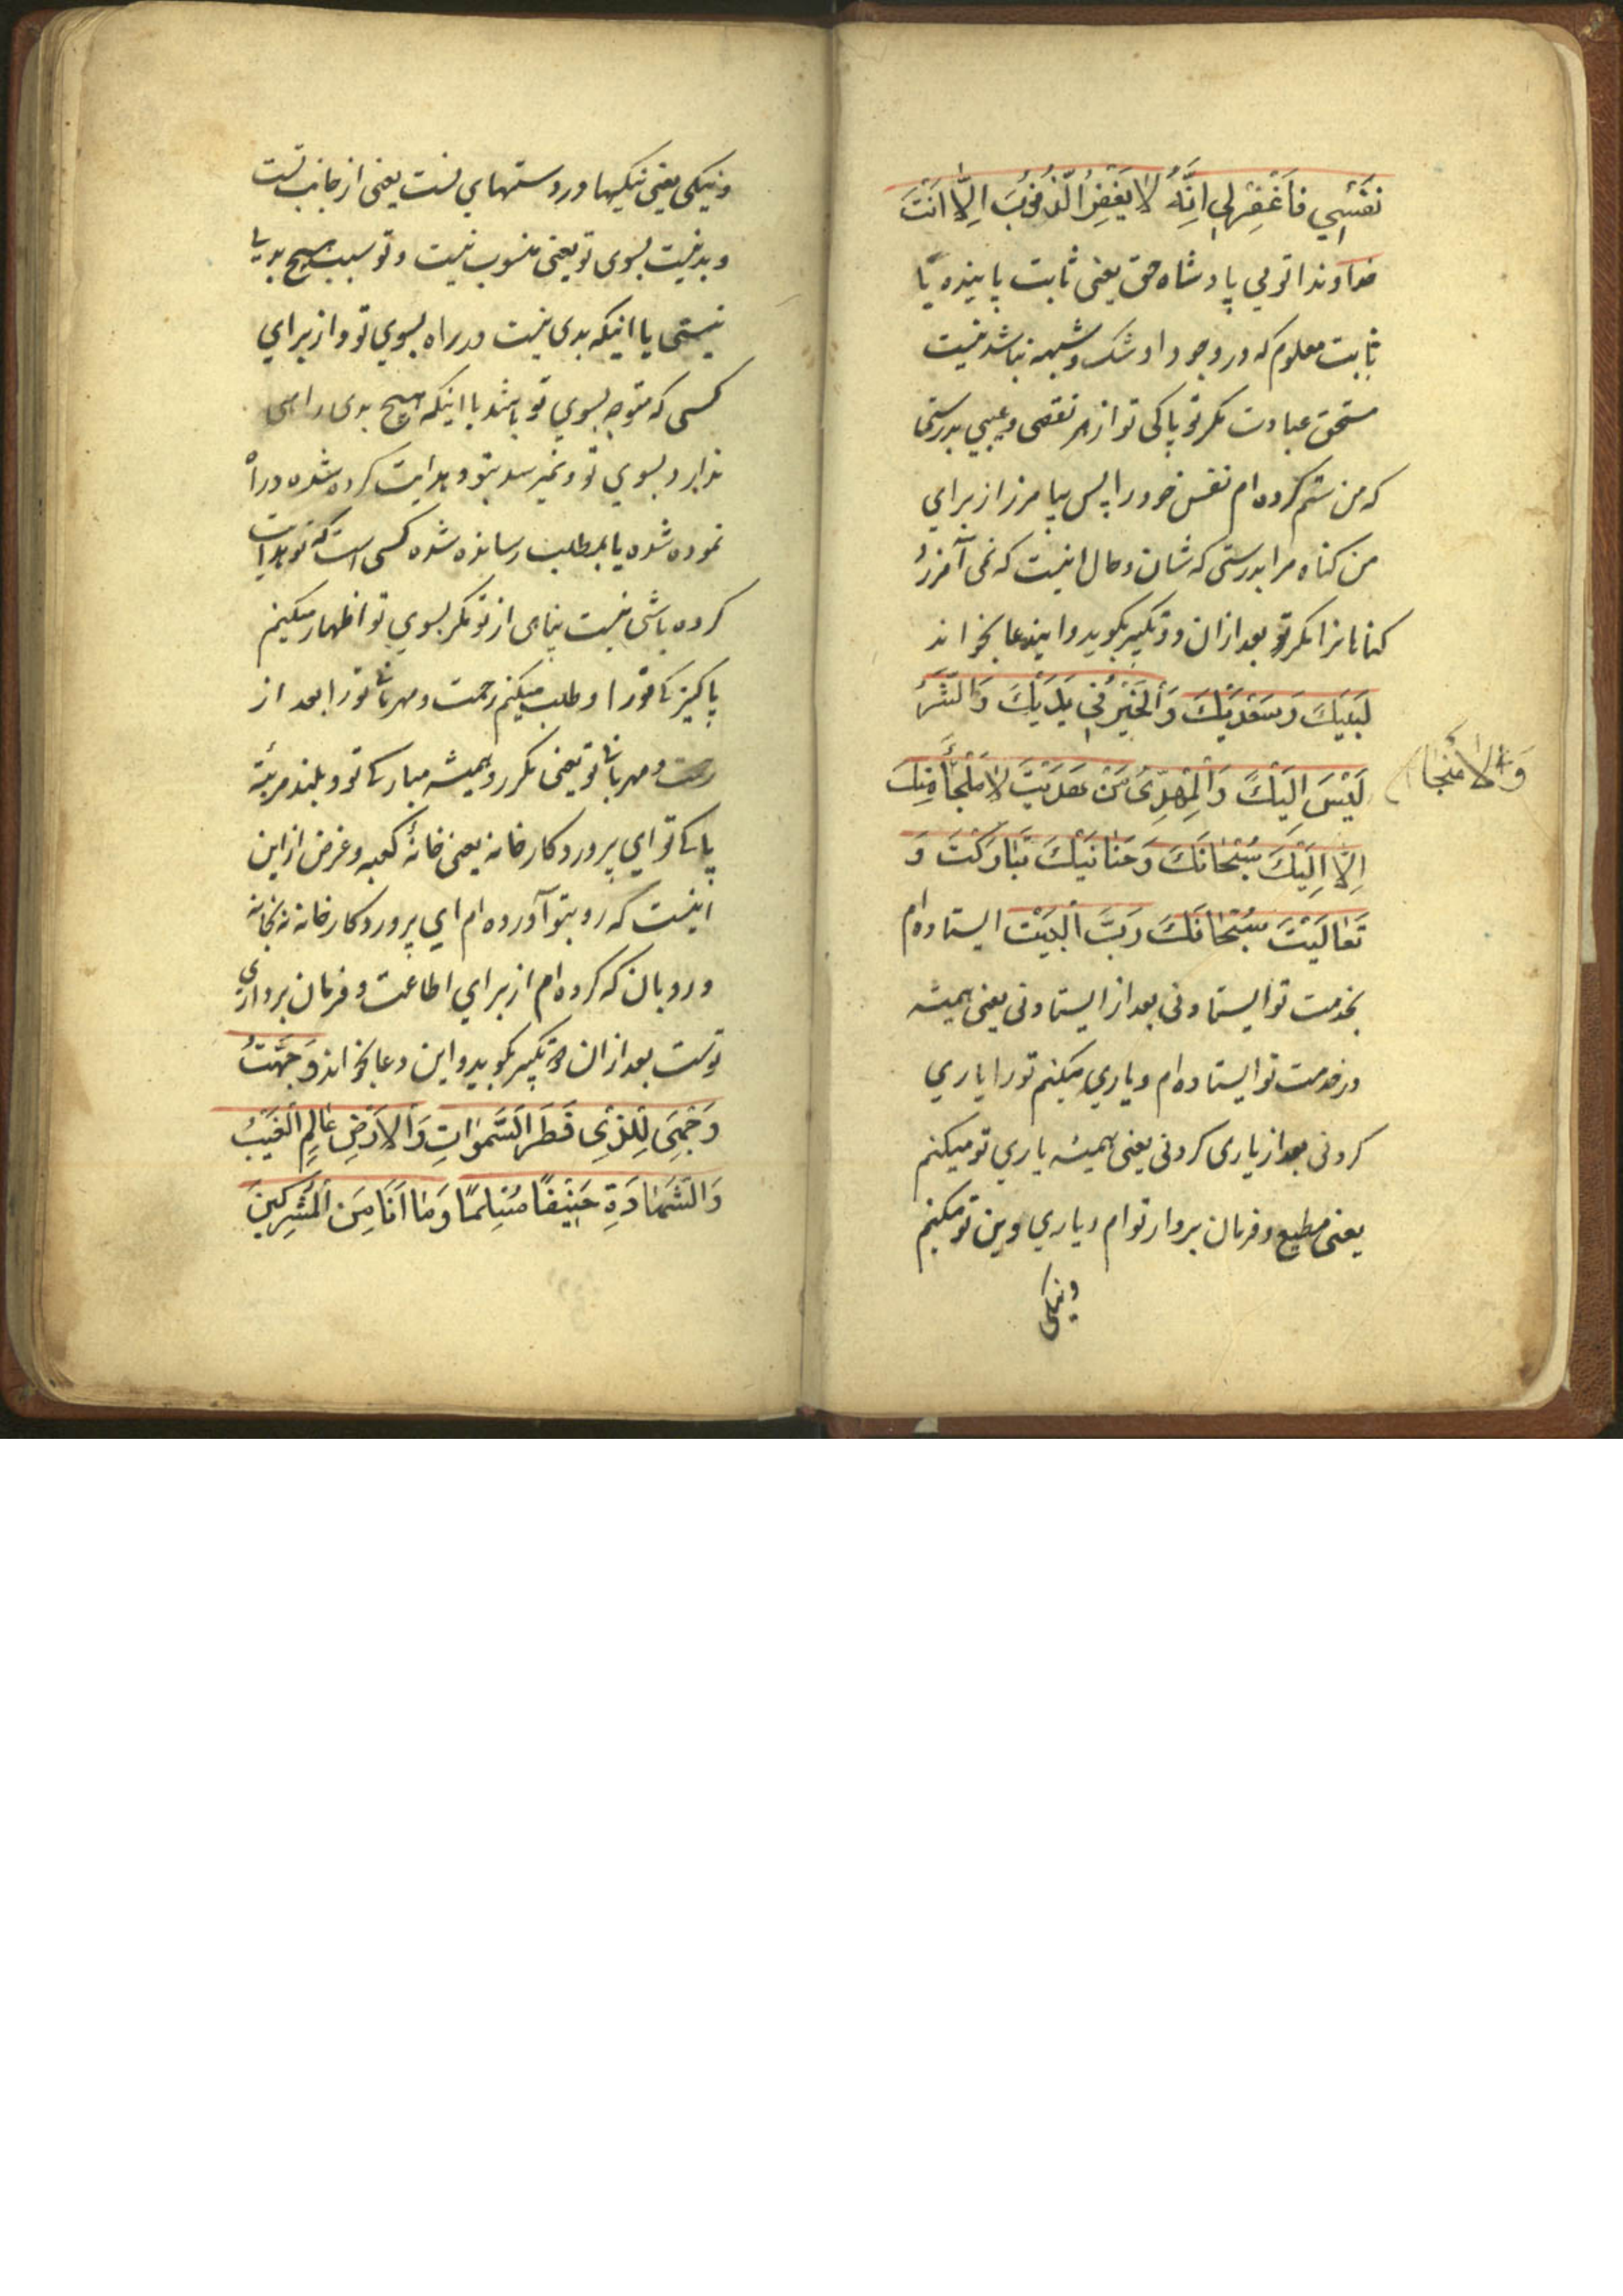 نَفْسِي فَاغْفِرْلِي اِنَّهُ لَا يَغْفِرُ الذُّنُوبَ اِلَّا اَنْتَ
خداوندا تویی پادشاه حق یعنی ثابت پاینده یا
ثابت معلوم که در وجود او شک و شبهه نباشد نیست
مستحق عبادت مکر تو پاکی تو از هر نقصی و عیبی بدرستی
که من ستم کرده‌ام نفس خود را پس بیامرز از برای
من کناه مرا بدرستی که شان و حال اینست که نمی آمرزد
کناهانرا مکر تو بعد ازان دو تکبیر بکوید و این دعا بخواند
لَبَّيْكَ وَسَعْدَيْكَ وَالْخَيْرُ فِي يَدَيْكَ وَالشَّرُّ
لَيْسَ اِلَيْكَ وَالْمَهْدِيُّ مَنْ هَدَيْتَ لَا مَلْجَأَ مِنْكَ
وَلَا مَنْجَا
اِلَّا اِلَيْكَ سُبْحَانَكَ وَحَنَانَيْكَ تَبَارَكْتَ وَ
تَعَالَيْتَ سُبْحَانَكَ رَبَّ الْبَيْتِ ایستاده‌ام
بخدمت تو ایستادنی بعد از ایستادنی یعنی همیشه
در خدمت تو ایستاده‌ام و یاری میکنم تو را یاری
کردنی بعد از یاری کردنی یعنی همیشه یاری تو میکنم
یعنی مطیع و فرمان بردار توام و یاری دین تو میکنم
و نیکی
و نیکی یعنی نیکیها در دستهای تست یعنی از جانب تست
و بد نیست بسوی تو یعنی منسوب نیست و تو سبب هیچ بدی یا
نیستی یا اینکه بدی نیست در راه بسوی تو و از برای
کسی که متوجه بسوی تو باشد با اینکه هیچ بدی راهی
ندارد بسوی تو و نمیرسد بتو و هدایت کرده شده و راه
نموده شده یا بمطلب رسانده شده کسی است که تو هدایت
کرده باشی نیست پناهی از تو مکر بسوی تو اظهار میکنم
پاکیزکی تو را و طلب میکنم رحمت و مهربانی تو را بعد از
رحمت و مهربانی تو یعنی مکرر و همیشه مبارکی تو و بلند مرتبه
پاکی تو ای پروردکار خانه یعنی خانهٔ کعبه و غرض از این
اینست که رو بتو آورده‌ام ای پروردکار خانه نه بخانه
و رو بان که کرده‌ام از برای اطاعت و فرمان برداری
تو ست بعد ازان دو تکبیر بکوید و این دعا بخواند وَجَّهْتُ
وَجْهِيَ لِلَّذِي فَطَرَ السَّمٰوَاتِ وَالْاَرْضِ عَالِمِ الْغَيْبِ
وَالشَّهَادَةِ حَنِيفًا مُسْلِمًا وَمَا اَنَا مِنَ الْمُشْرِكِينَ